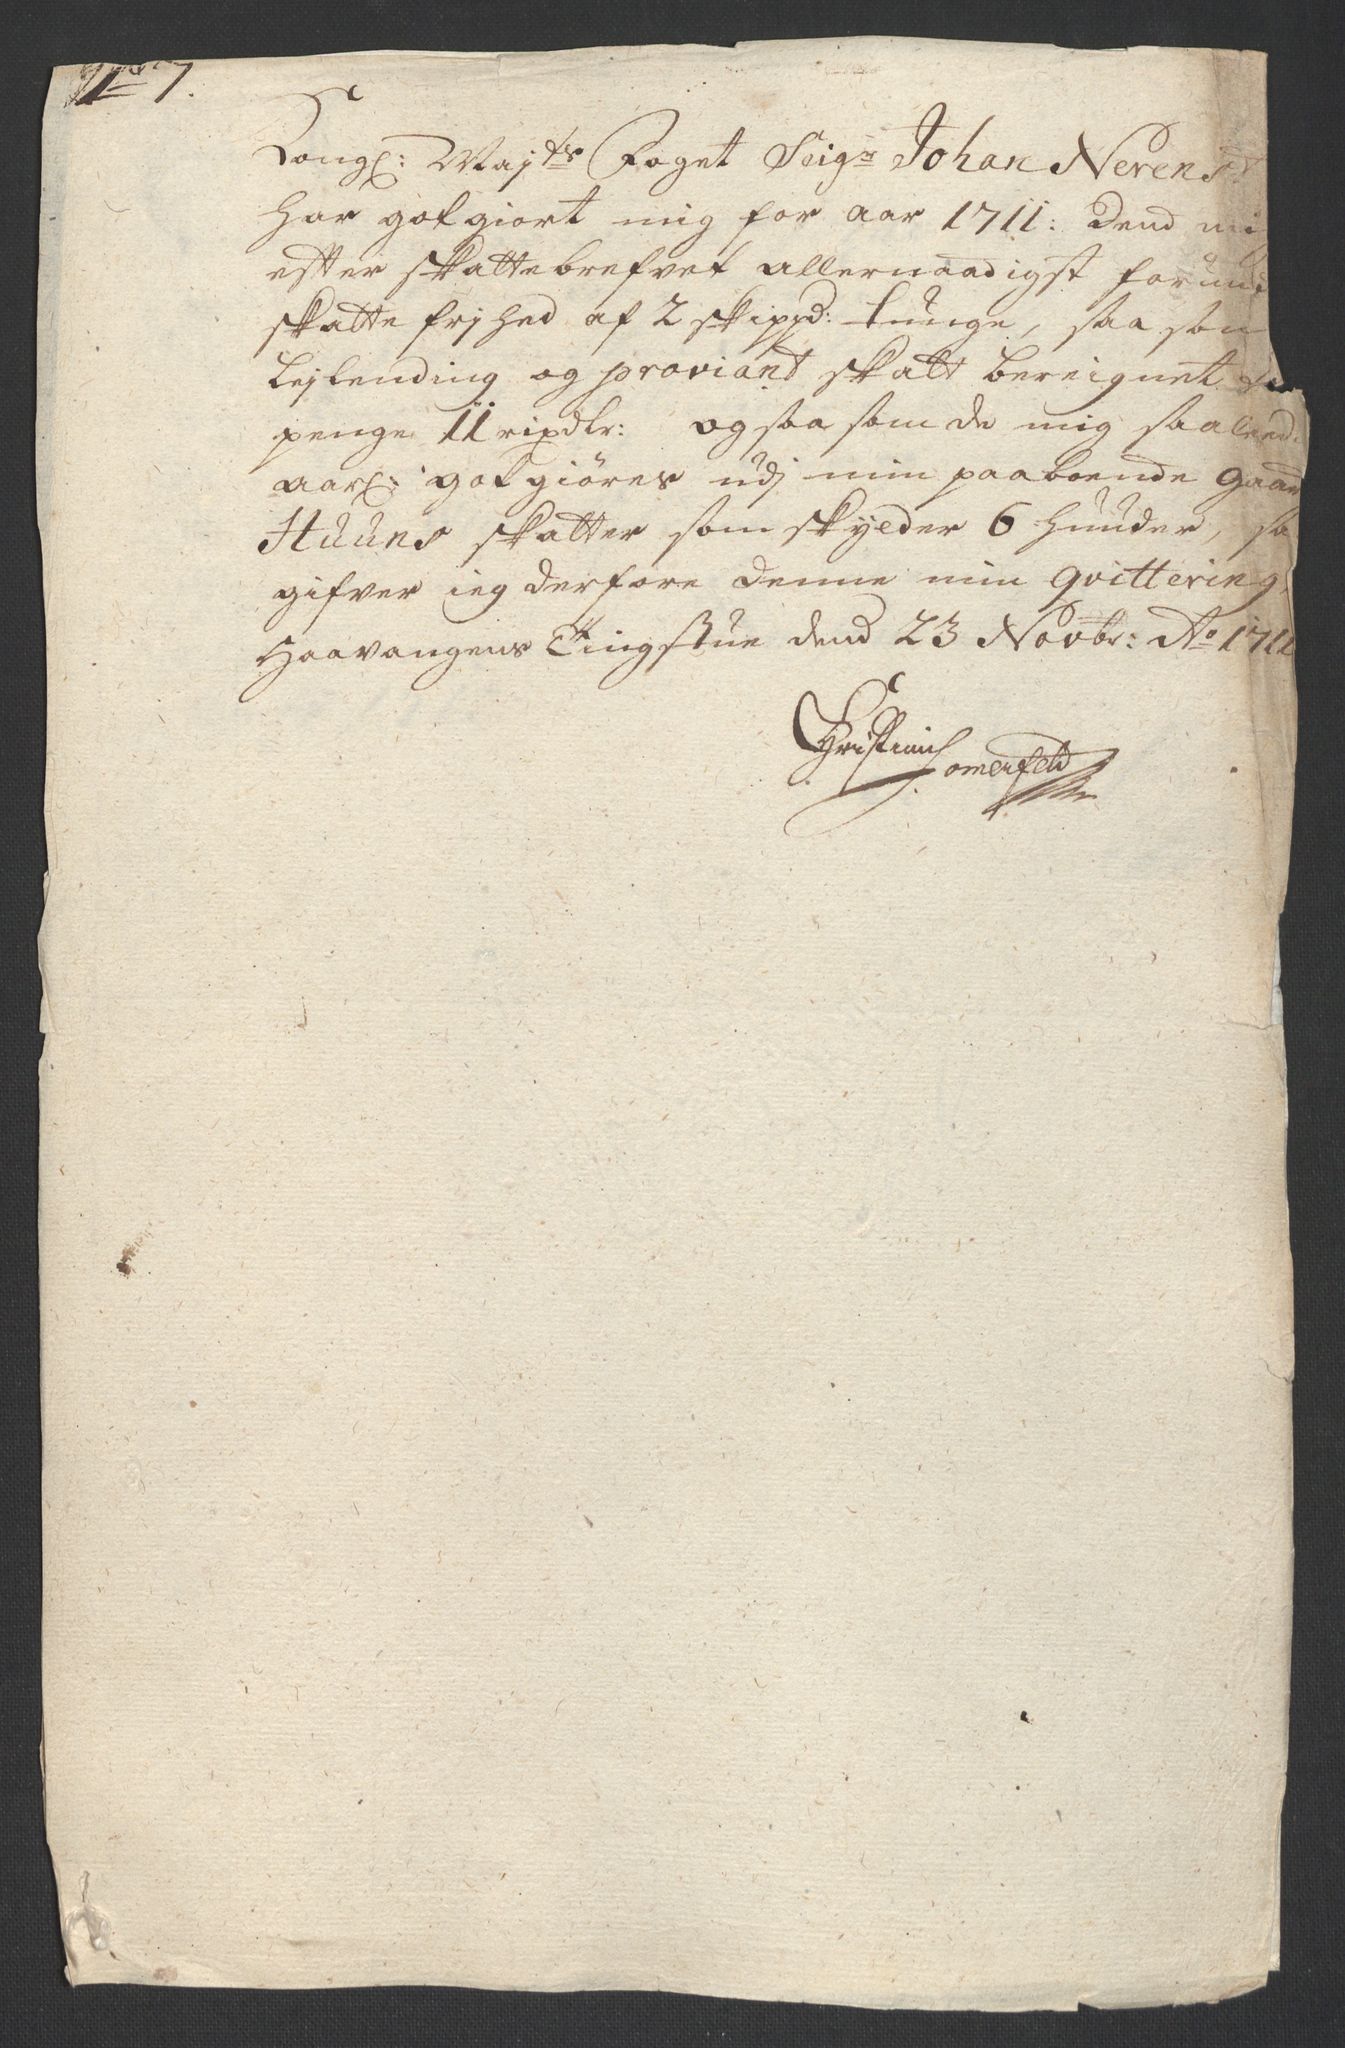 7.
Kongl: Maj:ts Foget Seigr Johan Nerens:
har gotgiort mig for aar 1711: Dend mi
efter skattebrefvet allernaadigst forund
skatte frjhed af 2 skippd: tunge, saa som
Lejlending og proviant skatt bereignet
penge 11 rixdlr: og saa som de mig saaleed
aarl: gotgiøres udj min paaboende gaard
Huuns skatter som skylder 6 huuder, sa
gifver ieg derfore denne min qvittering,
Haavangens Tingstue dend 23 Novbr: Ao 1711
Christian Somerfeld